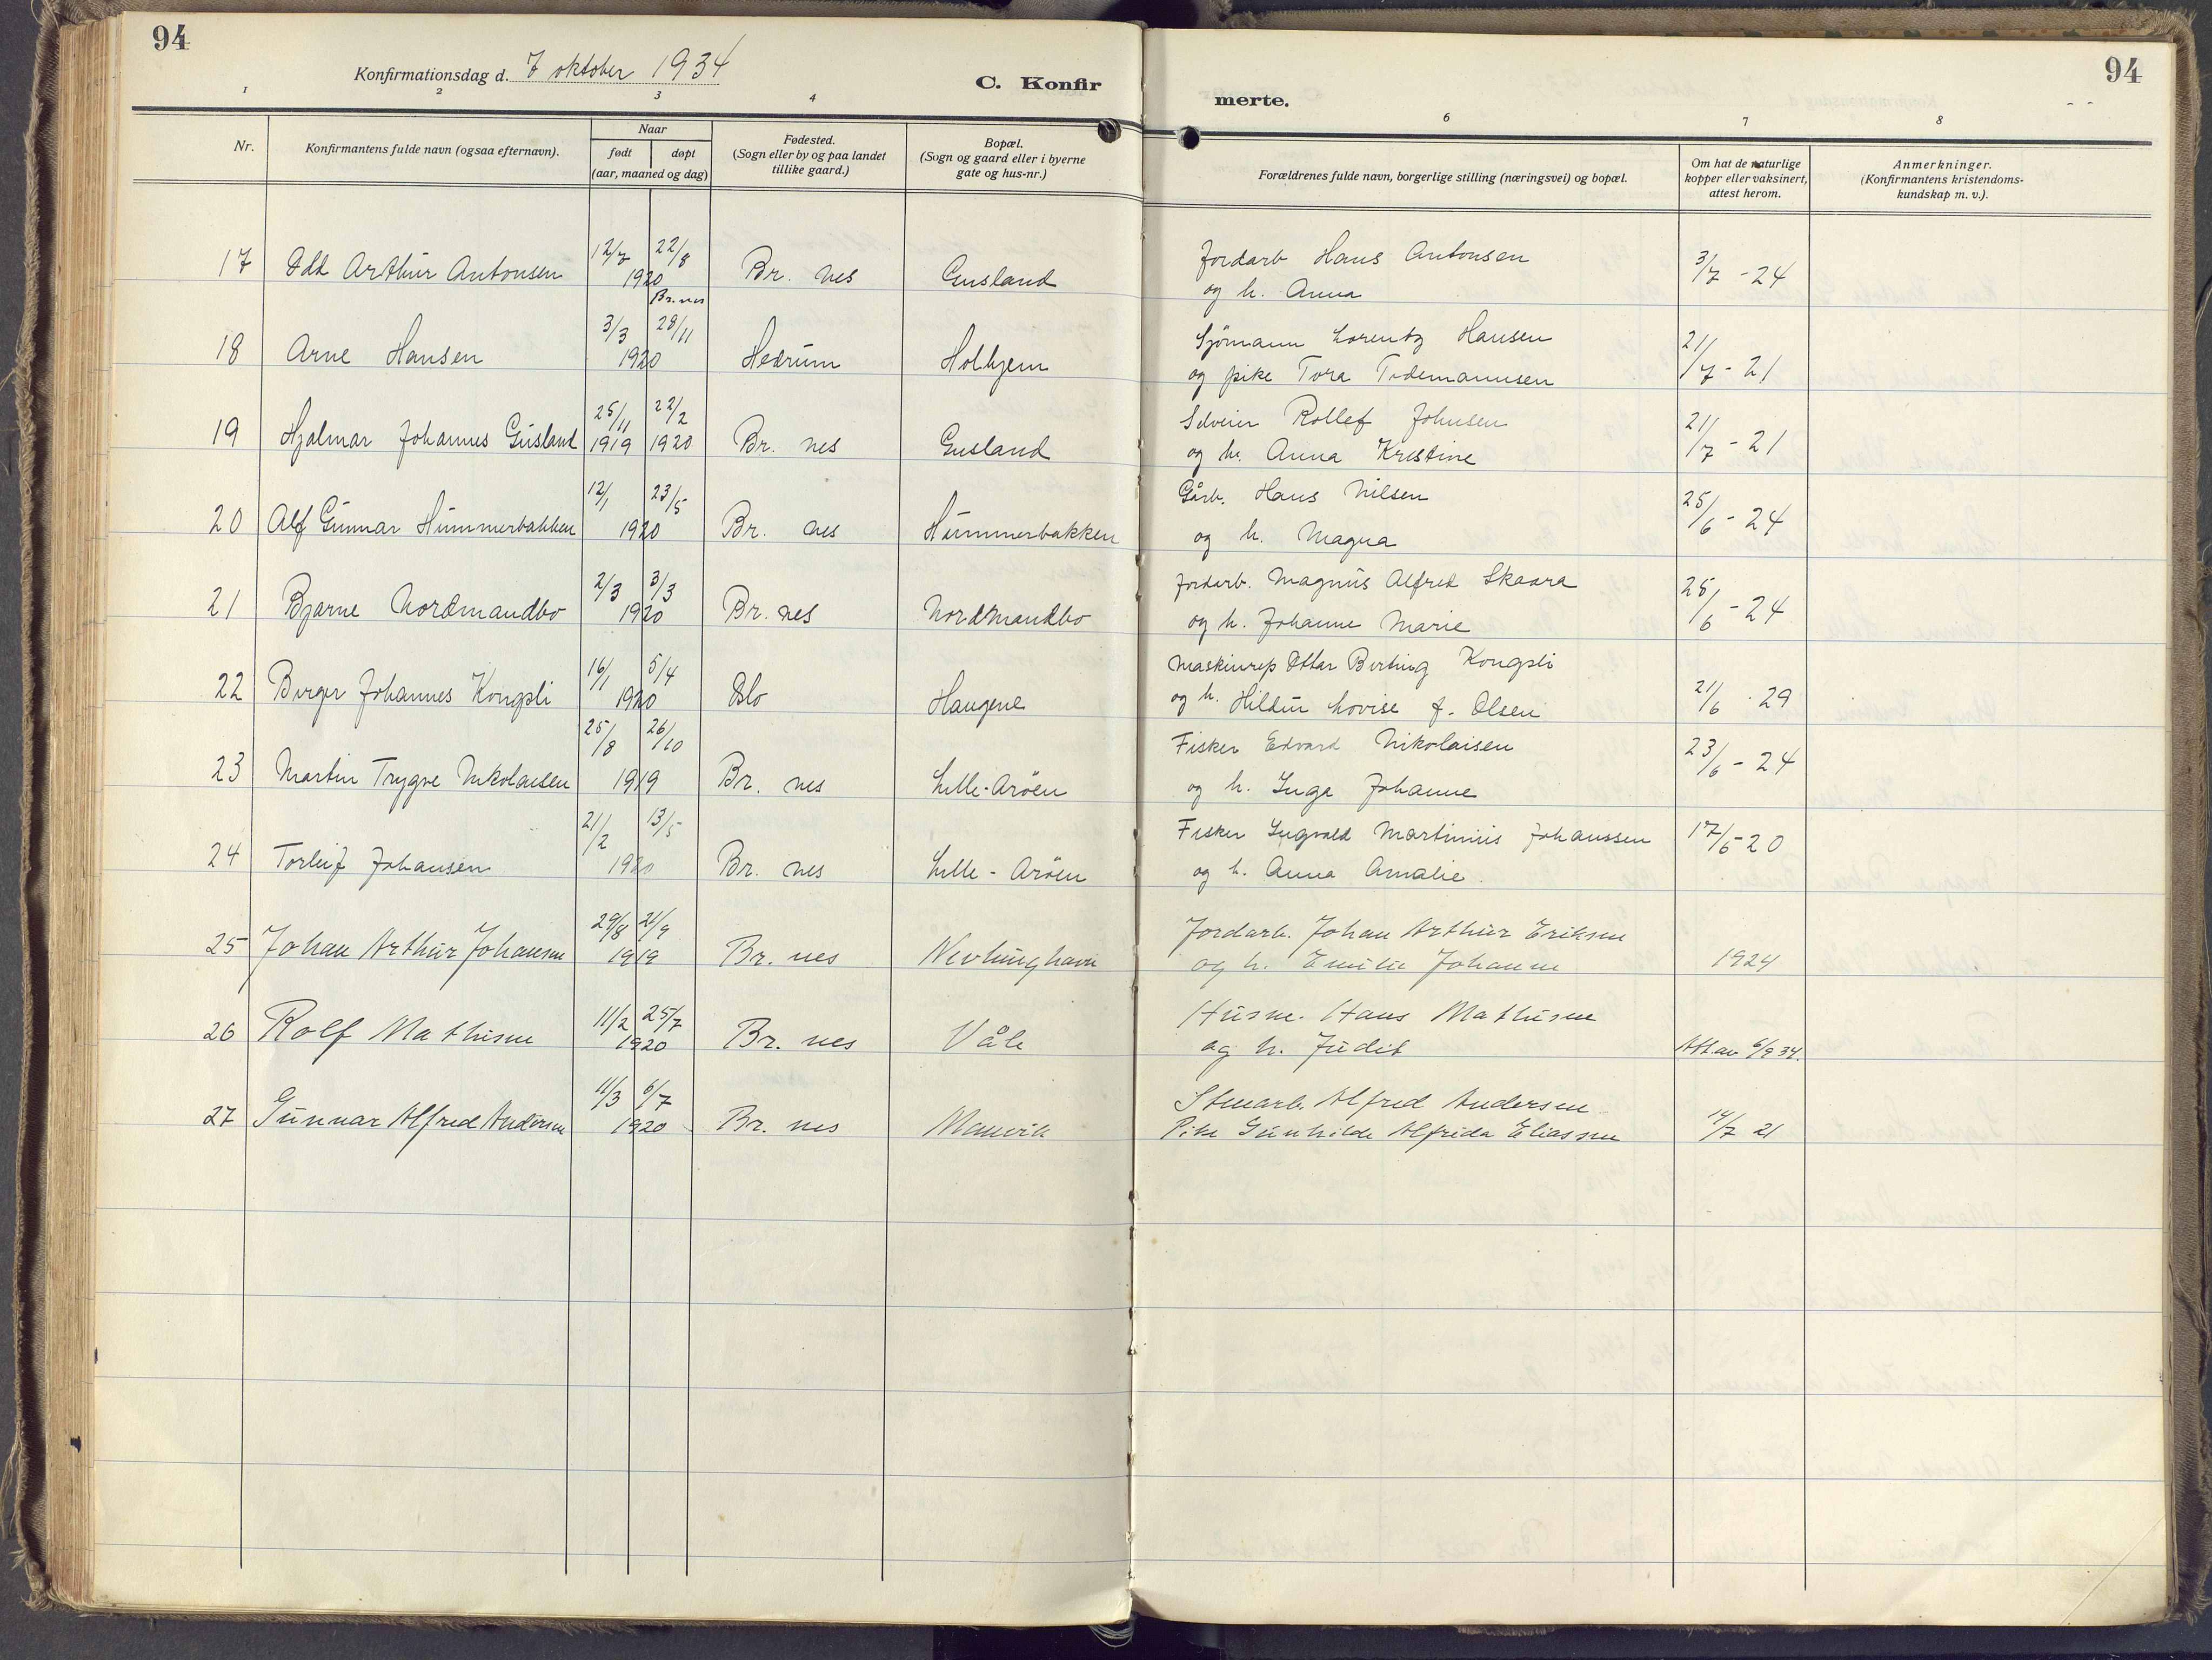 94
Konfirmationsdag d. 7 oktober 1934
C. Konfir
merte.
94
1 2 3 4 6 7 8
Nr.
Konfirmantens fulde navn (ogsaa efternavn).
Naar
født døpt
(aar, maaned og dag)
Fødested.
(Sogn eller by og paa landet
tillike gaard.)
Bopæl.
(Sogn og gaard eller i byerne
gate og hus-nr.)
Forældrenes fulde navn, borgerlige stilling (næringsvei) og bopæl.
Om hat de naturlige
kopper eller vaksinert,
attest herom.
Anmerkninger.
(Konfirmantens kristendoms-
kundskap m. v.).
17 Odd Arthur Antonsen 12/7 22/8 1920 Br. nes Gusland Jordarb Hans Antonsen 3/7 - 24
og h. Anna
Br. nes
18 Arne Hansen 3/3 28/11 1920 Hedrum Holhjem Sjømann Lorentz Hansen 21/7 - 21
og pike Tora Tidemannsen
19 Hjalmar Johannes Gusland 25/11 1919 22/2 1920 Br. nes Gusland Selveier Rollef Johnsen 21/7 - 21
og h. Anna Kristine
20 Alf Gunnar Hummerbakken 12/1 23/5 1920 Br. nes Hummerbakken Gårb. Hans Nilsen 25/6 - 24
og h. Magna
21 Bjarne Nordmandbo 2/3 3/3 1920 Br. nes Nordmandbo Jordarb. Magnus Alfred Skaara 25/6 - 24
og h. Johanne Marie
22 Birger Johannes Kongsli 16/1 5/4 1920 Oslo Haugene Maskinrep Ottar Birting Kongsli 21/6 - 29
og h. Hildur Lovise f. Olsen
23 Martin Trygve Nikolaisen 25/8 26/10 1919 Br. nes Lille-Arøen Fisker Edvard Nikolaisen 23/6 - 24
og h. Inga Johanne
24 Torleif Johansen 21/2 13/5 1920 Br. nes Lille - Arøen Fisker Ingvald Martinius Johanssen 17/6 - 20
og h. Anna Amalie.
25 Johan Arthur Johansen 29/8 21/9 1919 Br. nes Nevlunghavn Jordarb. Johan Arthur Eriksen 1924
og h. Emilie Johanne
26 Rolf Mathisen 11/2 25/7 1920 Br. nes Våle Husm. Hans Mathisen
og h. Judit Att. av 6/9 34.
27 Gunnar Alfred Andersen 11/3 6/7 1920 Br. nes Manvik Stenarb. Alfred Andersen 14/7 21
Pike Gunhilde Alfrida Eliassen